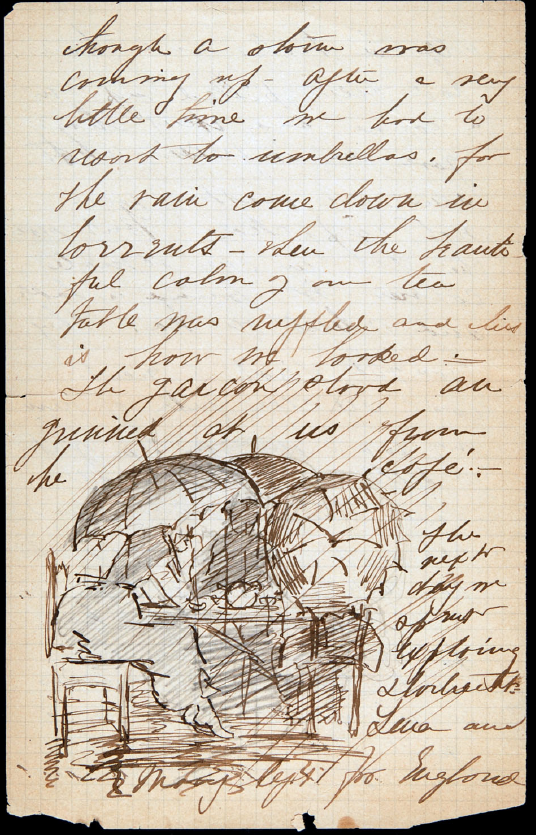 though a storm was
coming up - after a very
little time we had to
resort to umbrellas, for
the rain come down in
torrents - then the beauti
ful calm of our tea
table was ruffled and this
is how we looked :-
The garcon stood an
grinned at us from
the café :-
The
next
day we
spent
exploring
Lena and
Mary left for England